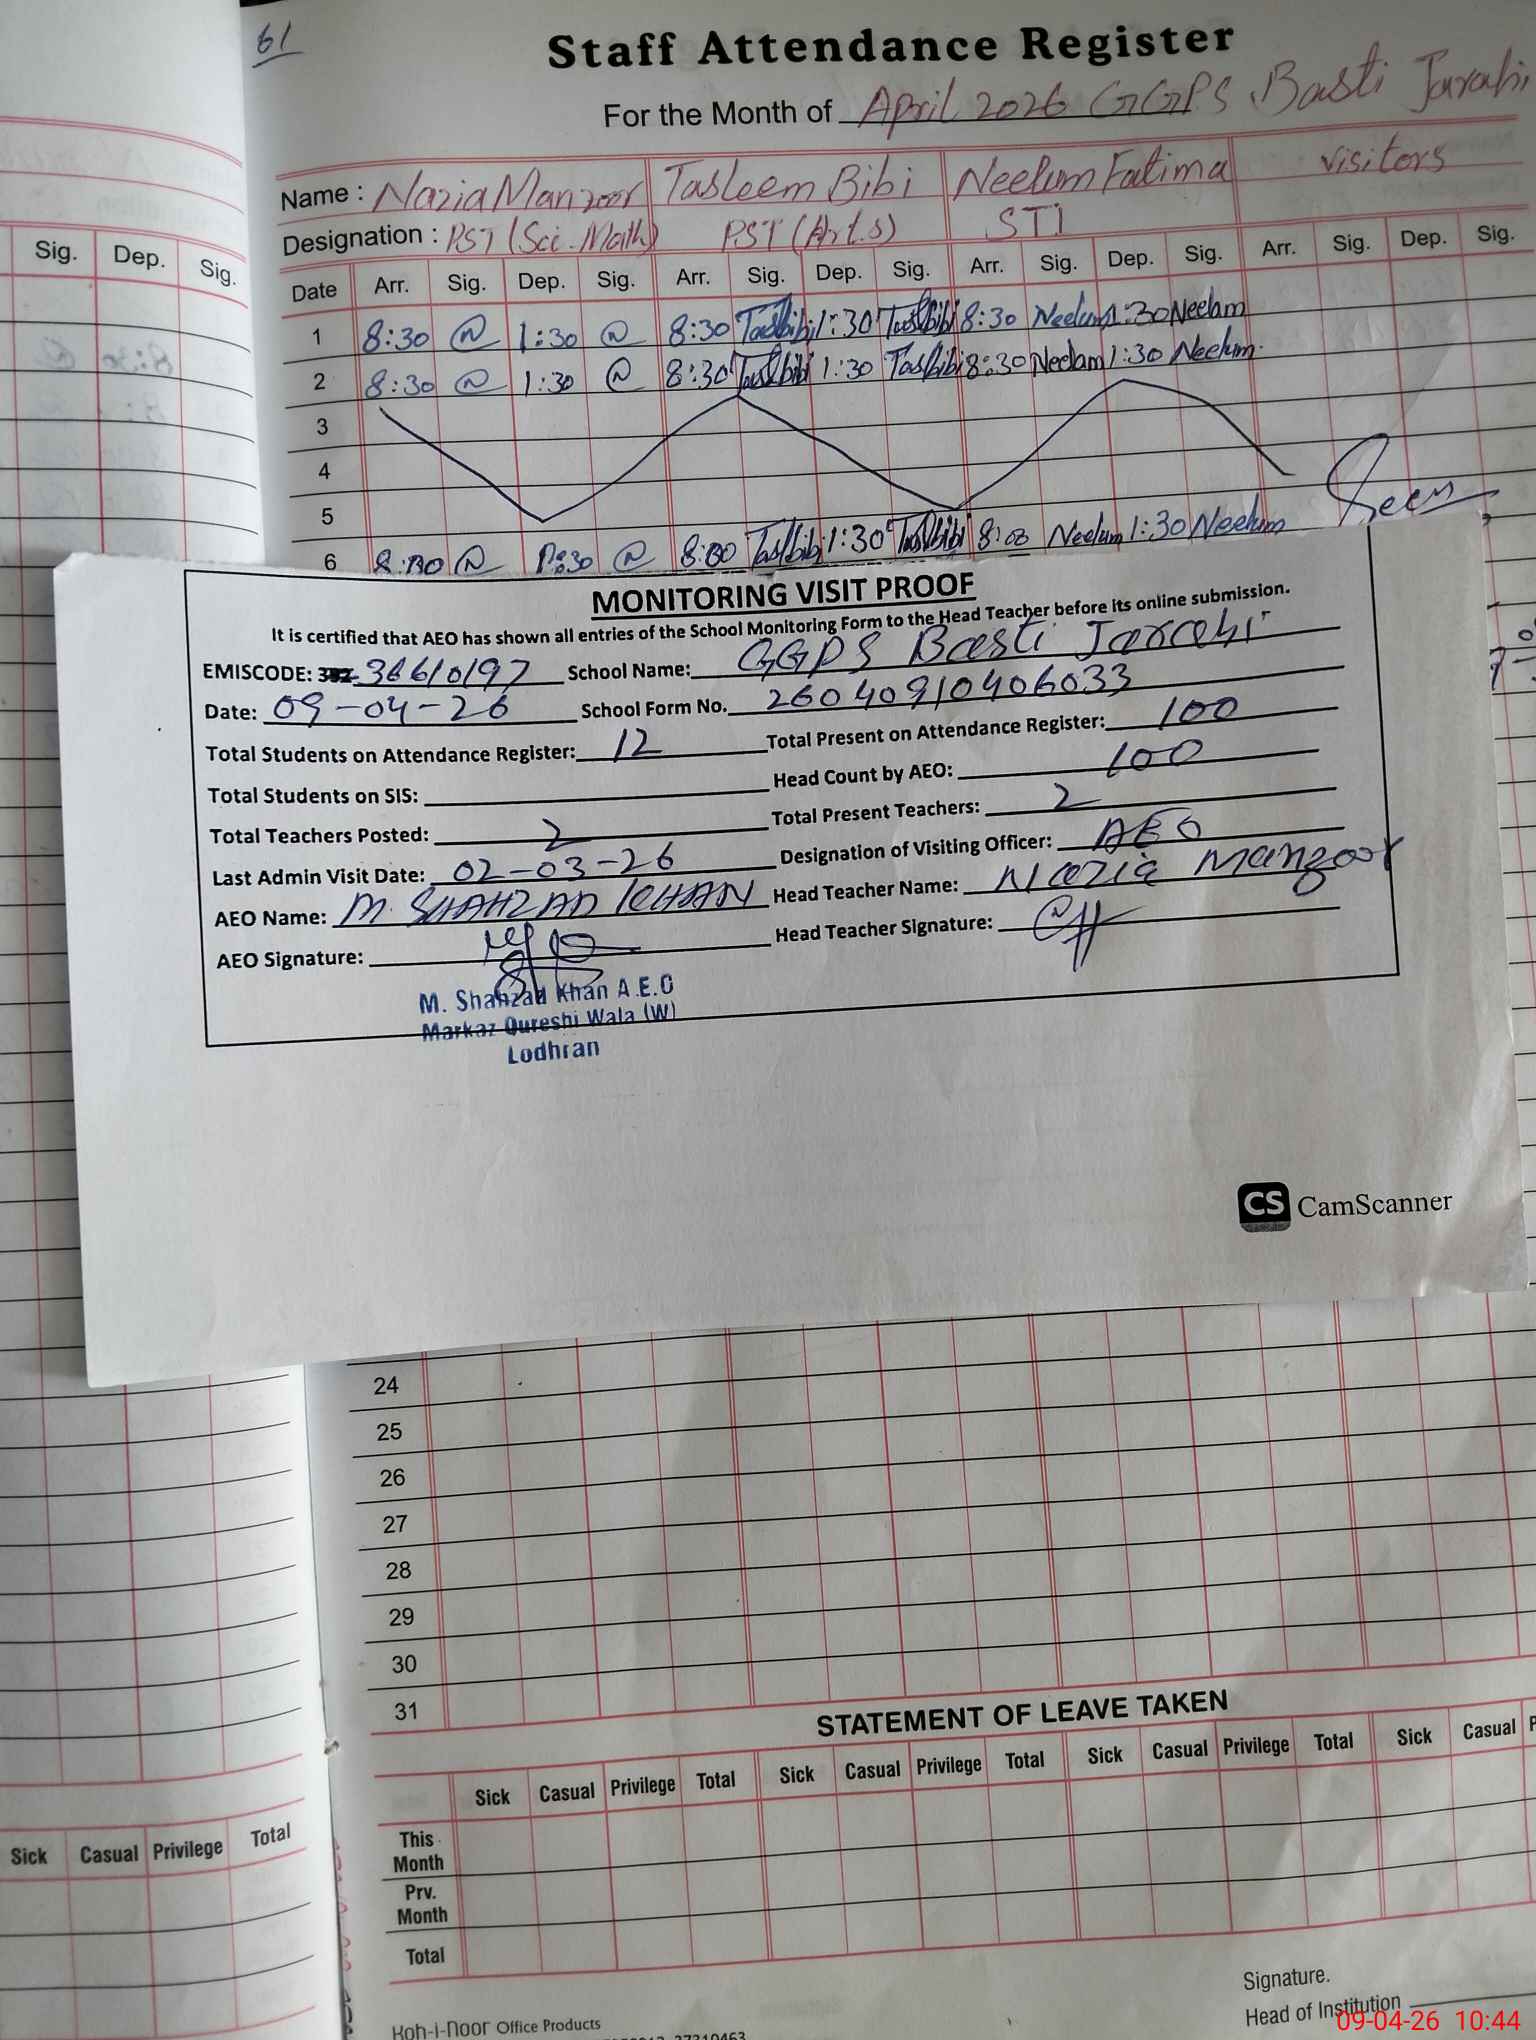 61
Staff Attendance Register
For the Month of April 2026 GGPS Basti Jarahi
Name : Nazia Manzoor Tasleem Bibi Neelum Fatima visitors
Designation : PST (Sci-Math) PST (Arts) STI
Sig. Dep. Sig.
Date Arr. Sig. Dep. Sig. Arr. Sig. Dep. Sig. Arr. Sig. Dep. Sig. Arr. Sig. Dep. Sig.
1 8:30 1:30 8:30 Taslbibi 1:30 Taslbibi 8:30 Neelum 1:30 Neelam
2 8:30 1:30 8:30 Taslbibi 1:30 Taslbibi 8:30 Neelam 1:30 Neelum
3
4
5
Seen
6 8:00 1:30 8:00 Taslbibi 1:30 Taslbibi 8:00 Neelum 1:30 Neelum
MONITORING VISIT PROOF
It is certified that AEO has shown all entries of the School Monitoring Form to the Head Teacher before its online submission.
EMISCODE: 36610197 School Name: GGPS Basti Jarahi
Date: 09-04-26 School Form No. 26040910406033
Total Students on Attendance Register: 12 Total Present on Attendance Register: 100
Total Students on SIS: Head Count by AEO: 100
Total Teachers Posted: 2 Total Present Teachers: 2
Last Admin Visit Date: 02-03-26 Designation of Visiting Officer: AEO
AEO Name: M. SHAHZAD KHAN Head Teacher Name: Nazia Manzoor
AEO Signature: Head Teacher Signature:
M. Shahzad Khan A.E.O
Markaz Qureshi Wala (W)
Lodhran
CS CamScanner
24
25
26
27
28
29
30
31
STATEMENT OF LEAVE TAKEN
Sick Casual Privilege Total Sick Casual Privilege Total Sick Casual Privilege Total Sick Casual
This Month
Prv. Month
Total
Sick Casual Privilege Total
Signature.
Head of Institution
Koh-i-noor Office Products
09-04-26 10:44